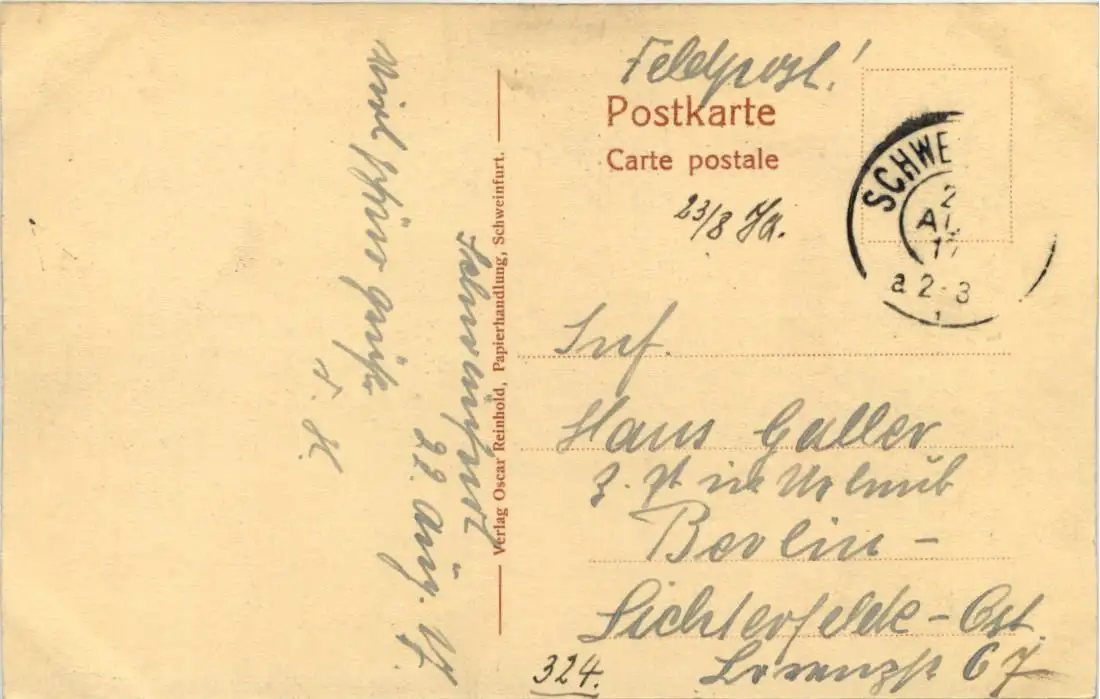 Feldpost!
Postkarte
Carte postale
23/8 Ja.
SCHWE
2
AU
17
a 2-3
Inf.
Hans Galler
z. Zt. in Urlaub
Berlin -
Lichterfelde - Ost.
Lorenzstr 67
324.
Verlag Oscar Reinhold, Papierhandlung, Schweinfurt.
Schweinfurt
22. Aug. 17.
schöne grüße
H.